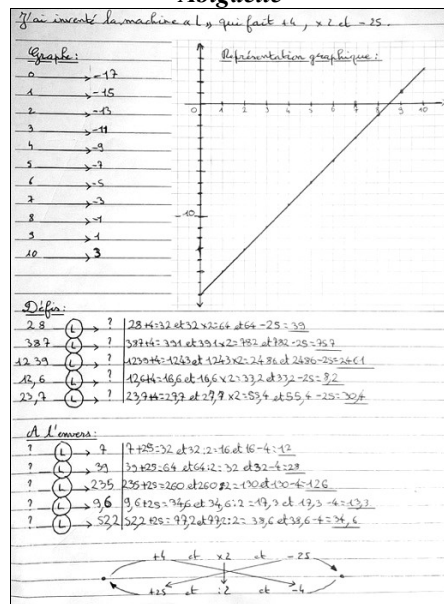 J'ai inventé la machine « L » qui fait +4, ×2 et -25.
Graphe :
0 → -17
1 → -15
2 → -13
3 → -11
4 → -9
5 → -7
6 → -5
7 → -3
8 → -1
9 → 1
10 → 3
Représentation graphique :
0 1 2 3 4 5 6 7 8 9 10
-10
Défis :
28 L → ? 28+4=32 et 32×2=64 et 64-25=39
387 L → ? 387+4=391 et 391×2=782 et 782-25=757
1239 L → ? 1239+4=1243 et 1243×2=2486 et 2486-25=2461
12,6 L → ? 12,6+4=16,6 et 16,6×2=33,2 et 33,2-25=8,2
23,7 L → ? 23,7+4=27,7 et 27,7×2=55,4 et 55,4-25=30,4
A l'envers :
? L → 7 7+25=32 et 32:2=16 et 16-4=12
? L → 39 39+25=64 et 64:2=32 et 32-4=28
? L → 235 235+25=260 et 260:2=130 et 130-4=126
? L → 9,6 9,6+25=34,6 et 34,6:2=17,3 et 17,3-4=13,3
? L → 52,2 52,2+25=77,2 et 77,2:2=38,6 et 38,6-4=34,6
+4 et ×2 et -25
+25 et :2 et -4